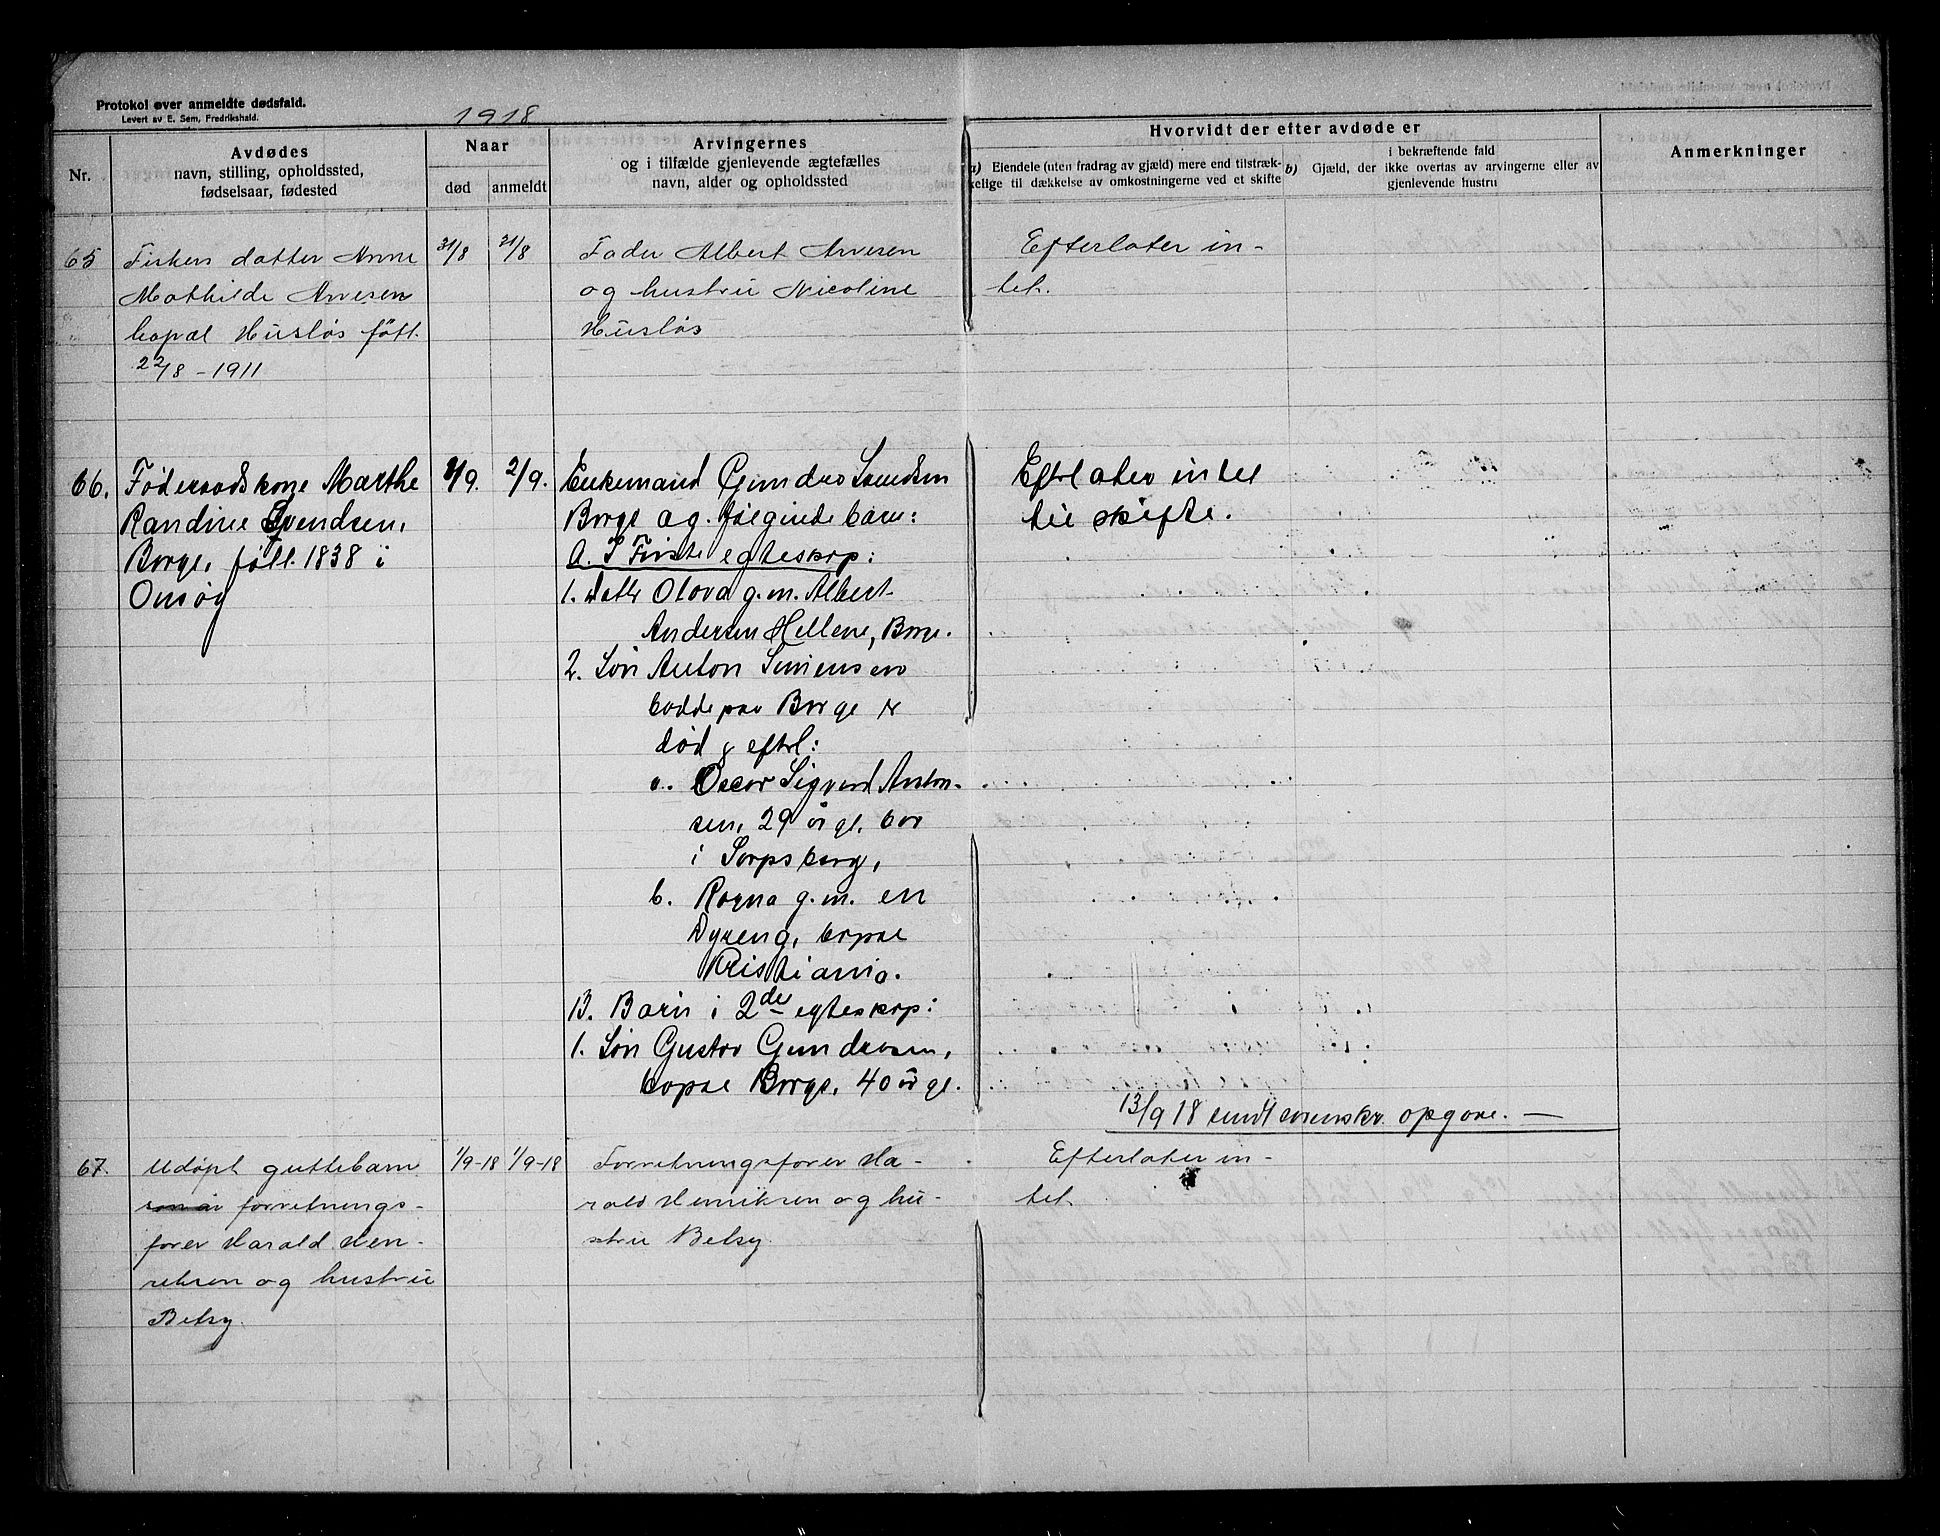 Protokol over anmeldte dødsfald.
Levert av E. Sem, Fredrikshald.
1918
Nr.
Avdødes
navn, stilling, opholdssted,
fødselsaar, fødested
Naar
død
anmeldt
Arvingernes
og i tilfælde gjenlevende ægtefælles
navn, alder og opholdssted
Hvorvidt der efter avdøde er
a) Eiendele (uten fradrag av gjæld) mere end tilstræk-
kelige til dækkelse av omkostningerne ved et skifte
b) Gjæld, der
i bekræftende fald
ikke overtas av arvingerne eller av
gjenlevende hustru
Anmerkninger
65
Fiskers datter Anne
Mathilde Arvesen
bopæl Husløs født
22/8 - 1911
31/8
31/8
Fader Albert Arvesen
og hustru Nicoline
Husløs
Efterlater in-
tet.
66.
Føderaadskone Marthe
Randine Svendsen,
Borge, født 1838 i
Onsøy
2/9.
Enkemand Gundro Svendsen
Borge og følgende barn:
A. I Første egteskap:
1. Datter Olava g.m. Albert
Andersen Hellene, Borge.
2. Søn Anton Simensen
bodde paa Borge er
død & efterl:
a. Oscar Sigvard Anton-
sen, 29 år gl. bor
i Sarpsborg,
b. Ragna g.m. en
Dyreng, bopæl
Kristiania.
B. Barn i 2det egteskap:
1. Søn Gustav Gundrosen,
bopæl Borge, 40 år gl.
Efterlater intet
til skifte.
13/9 18 sendt opgave. —
67.
Udøpt guttebarn
forretnings-
fører Harald Hen-
riksen og hustru
Betsy.
1/9-18
1/9-18
Forretningsfører Ha-
rald Henriksen og hu-
stru Betsy
Efterlater in-
tet.